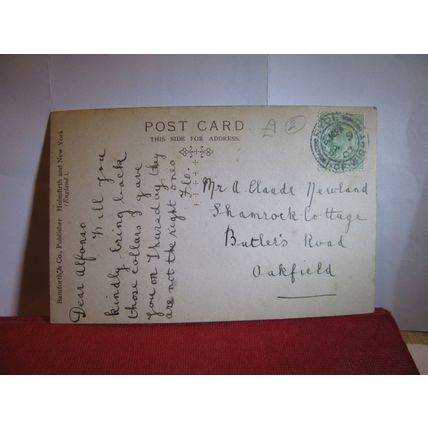 POST CARD
THIS SIDE FOR ADDRESS.
Bamforth & Co., Publisher Holmfirth and New York
(England)
Dear Alfonso
Will you
kindly bring back
those collars I gave
you on Thursday, they
are not the right ones
Flo.
Mr A. Claude Newland
Shamrock Cottage
Butler's Road
Oakfield
£ 2